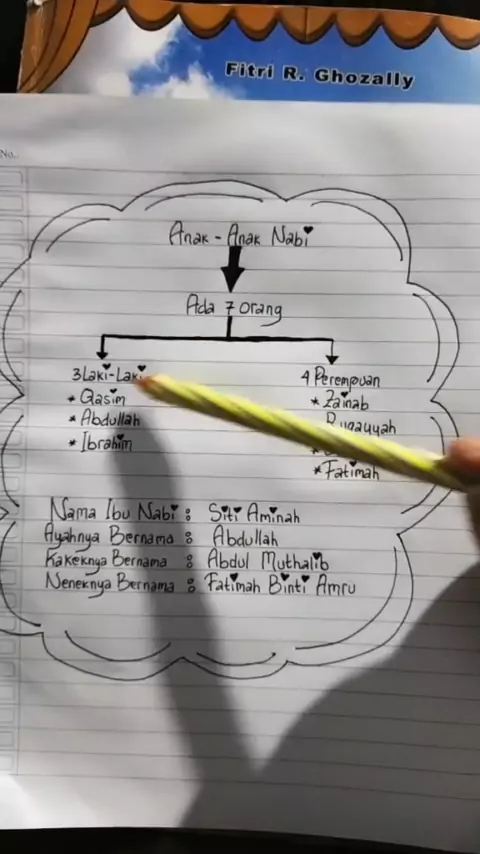 Fitri R. Ghozally
No.
Anak - Anak Nabi
Ada 7 orang
3 Laki-Laki
4 Perempuan
* Qasim
* Zainab
* Abdullah
Ruqayyah
* Ibrahim
* Fatimah
Nama Ibu Nabi : Siti Aminah
Ayahnya Bernama : Abdullah
Kakeknya Bernama : Abdul Muthalib
Neneknya Bernama : Fatimah Binti Amru